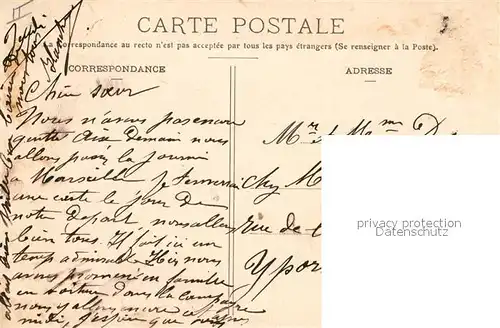 CARTE POSTALE
La Correspondance au recto n'est pas acceptée par tous les pays étrangers (Se renseigner à la Poste).
CORRESPONDANCE
ADRESSE
Chère sœur
Nous n'avons pas encore
quitté Aix Demain nous
allons passer la journée
à Marseille Je t'enverrai
une carte le jour de
notre départ nous allons
bien tous. Il fait ici un
temps admirable Hier nous
avons promener en famille
en voiture dans la campagne
nous y allons encore ce
midi, j'espère que vous
Mr et Mme D
chez M
rue de
Ypor
privacy protection
Datenschutz